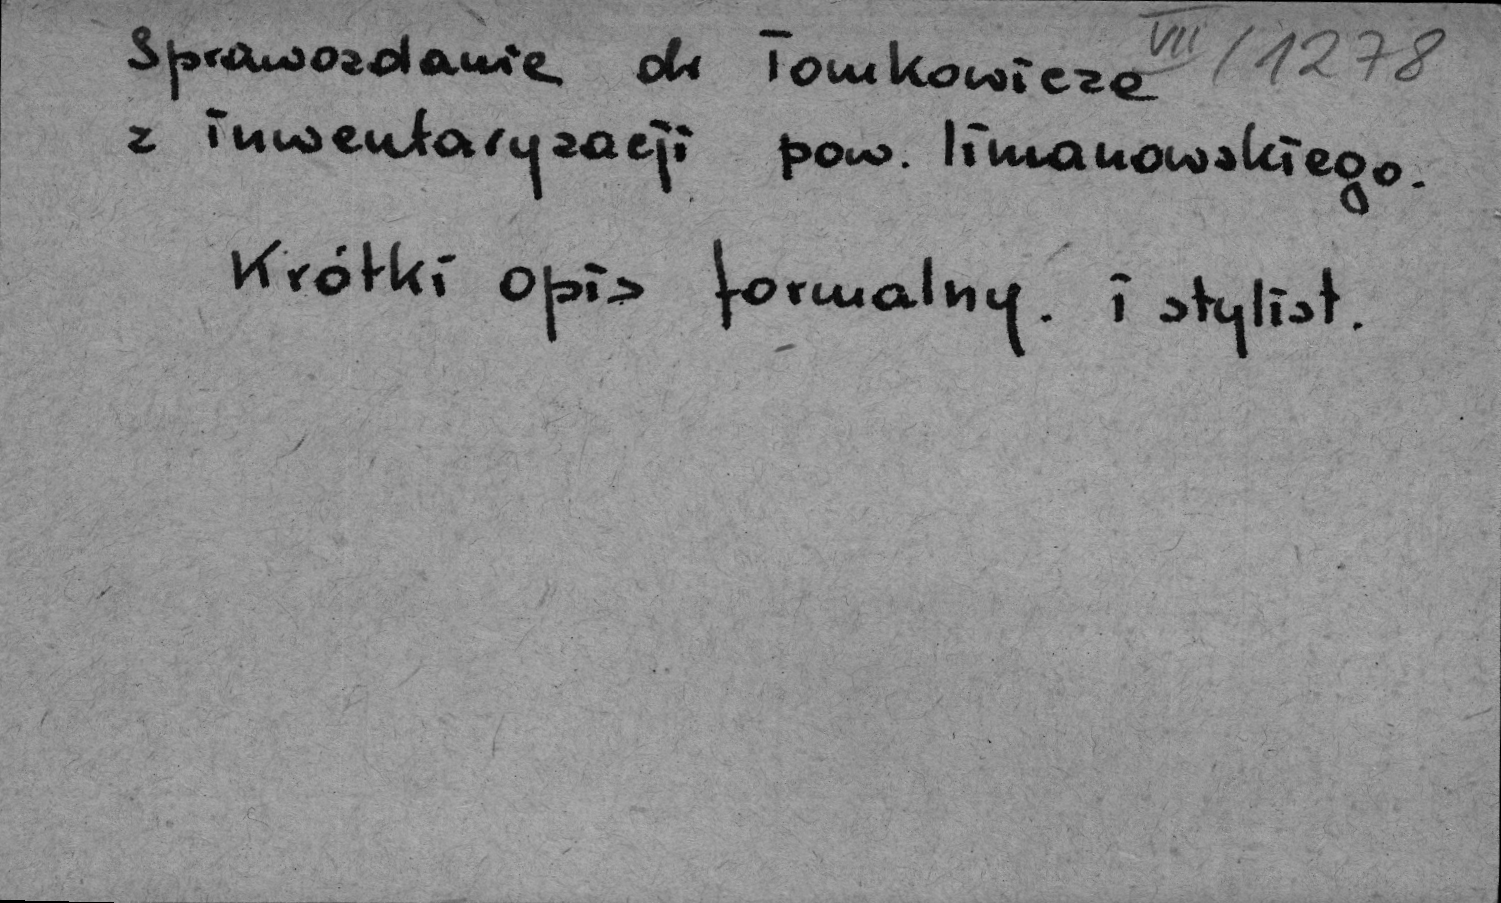 Sprawozdanie dr Tomkowicza VII/1278
z inwentaryzacji pow. limanowskiego.
Krótki opis formalny. i stylist.